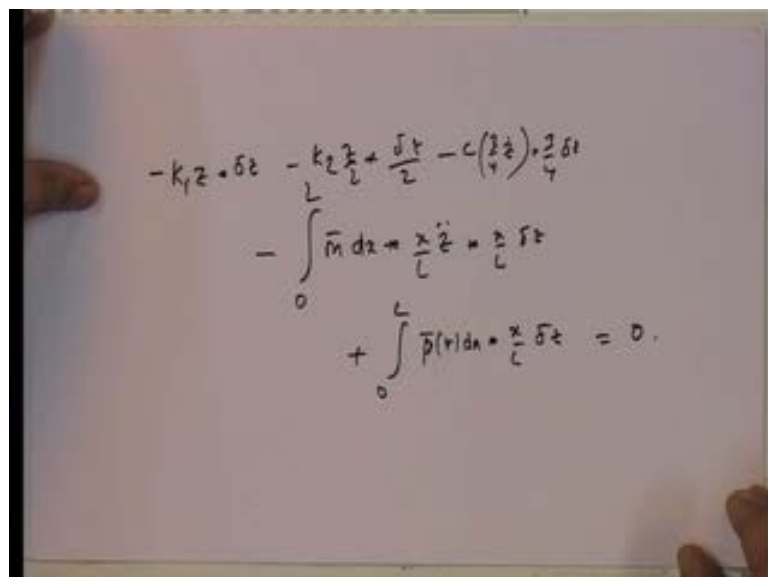 -k₁z * δz - k₂ z/2 * δz/2 - c(3/4 ż) * 3/4 δz
- ∫₀ᴸ m̄ dx * x/L z̈ * x/L δz
+ ∫₀ᴸ p̄(t) dx * x/L δz = 0.